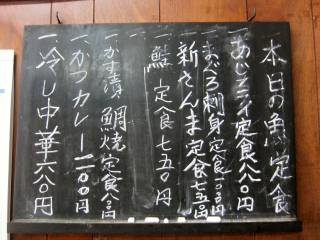 本日の魚定食
一 あじフライ定食八八〇円
一 まぐろ刺身定食八〇〇円
一 新さんま定食七五〇円
一 鮭定食七五〇円
一 かす漬鯛焼定食八〇〇円
一 かつカレー一一〇〇円
一 冷し中華六八〇円